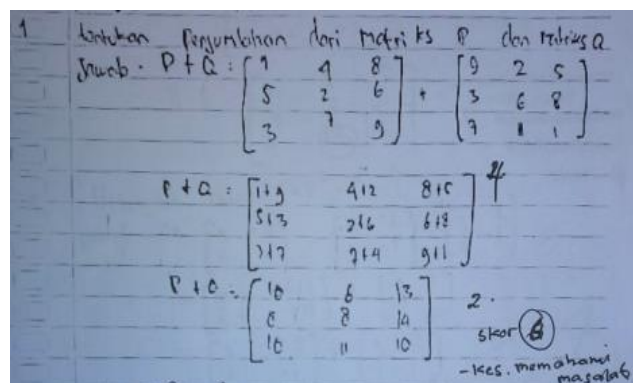 1 tentukan Penjumlahan dari Matriks P dan Matriks Q
Jawab. P + Q = [1 4 8] + [9 2 5]
[5 2 6] [3 6 8]
[3 7 9] [7 1]
P + Q = [1+9 4+2 8+5] 4
[5+3 2+6 6+8]
[3+7 7+4 9+1]
P + Q = [10 6 13] 2.
[8 8 14]
[10 11 10]
skor 6
- Kes. memahami
masalah